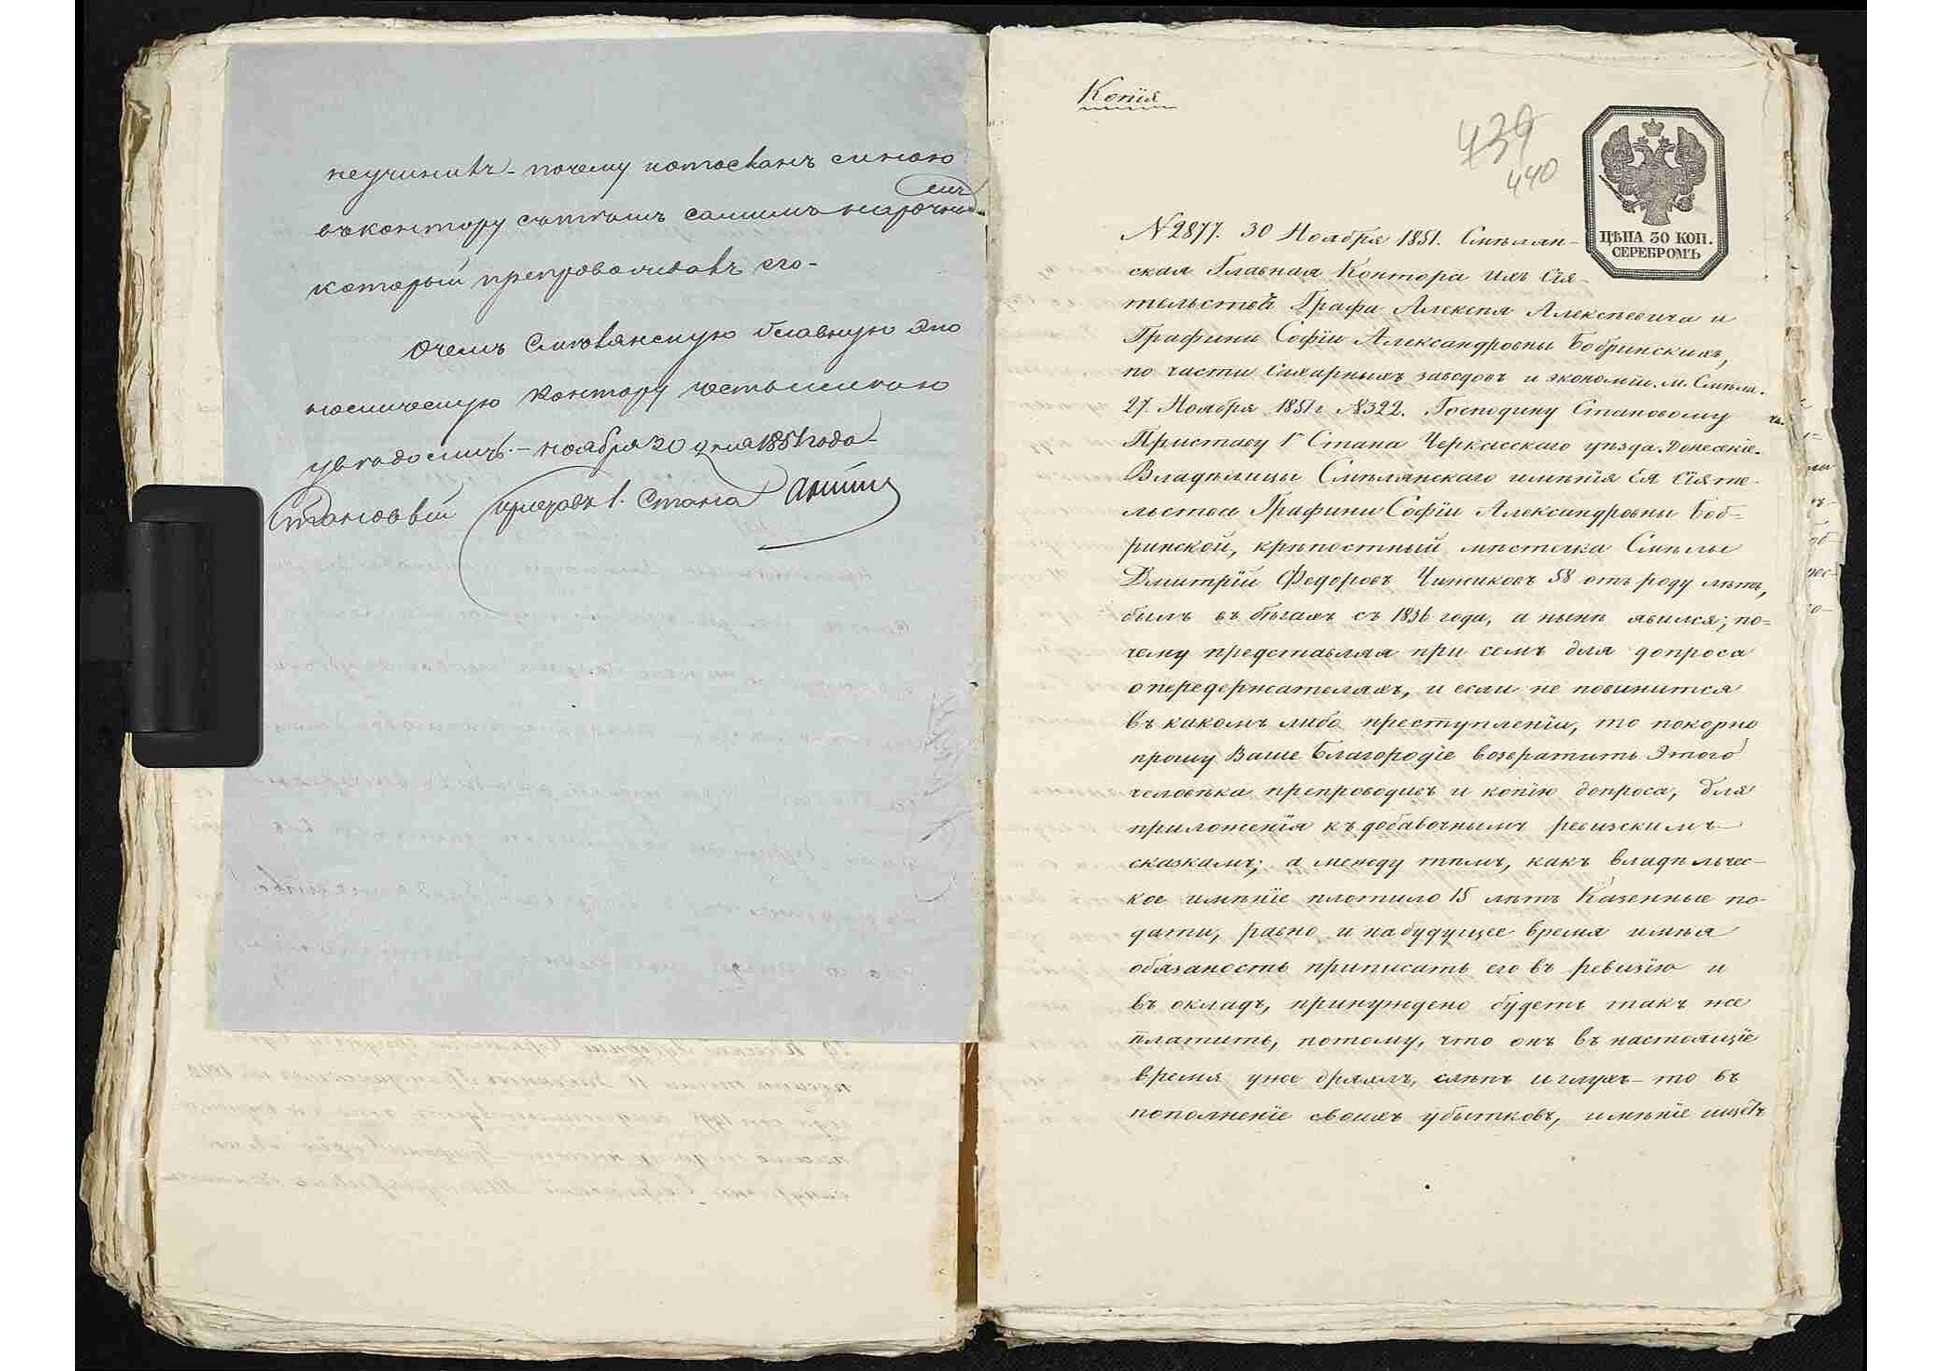 неучинивъ - почему и отосланъ съ мною
емъ
въ контору съ тѣмъ самимъ нарочни-
который препровождавъ его -
О чемъ Смѣлянскую Главную Эко
номическую Контору честь имѣю
увѣдомить. - ноября 30 дня 1851 года -
Становый приставъ 1. Стана
Копія
439
440
ЦѢНА 30 КОП.
СЕРЕБРОМЪ
№ 2877. 30 Ноября 1851. Смѣлян-
ская Главная Контора ихъ Сія-
тельствъ Графа Алексѣя Алексѣевича и
Графини Софіи Александровны Бобринскихъ,
по части Сахарныхъ заводовъ и экономіи. м. Смѣла.
27 Ноября 1851 г. № 322. Господину Становому
Приставу 1го Стана Черкасскаго уѣзда. Донесеніе.
Владѣлицы Смѣлянскаго имѣнія Ея Сіяте-
льства Графини Софіи Александровны Боб-
ринской, крѣпостный мѣстечка Смѣлы
Дмитрій Федоровъ Чижиковъ 58 отъ роду лѣтъ,
былъ въ бѣгахъ съ 1836 года, а нынѣ явился; по-
чему представляя при семъ для допроса
о передержателяхъ, и если не повинится
въ какомъ либо преступленіи, то покорно
прошу Ваше Благородіе возвратить Этого
человѣка препроводивъ и копію допроса, для
приложенія къ добавочнымъ ревизскимъ
сказкамъ; а между тѣмъ, какъ владѣльчес-
кое имѣніе платило 15 лѣтъ Казенные по-
дати, равно и на будущее время имѣя
обязаность приписать его въ ревизію и
въ окладъ, принуждено будетъ такъ же
платить, потому, что онъ въ настоящіе
время уже дряхлъ, слѣпъ и глухъ - то въ
пополненіе своихъ убытковъ, имѣніе ищетъ